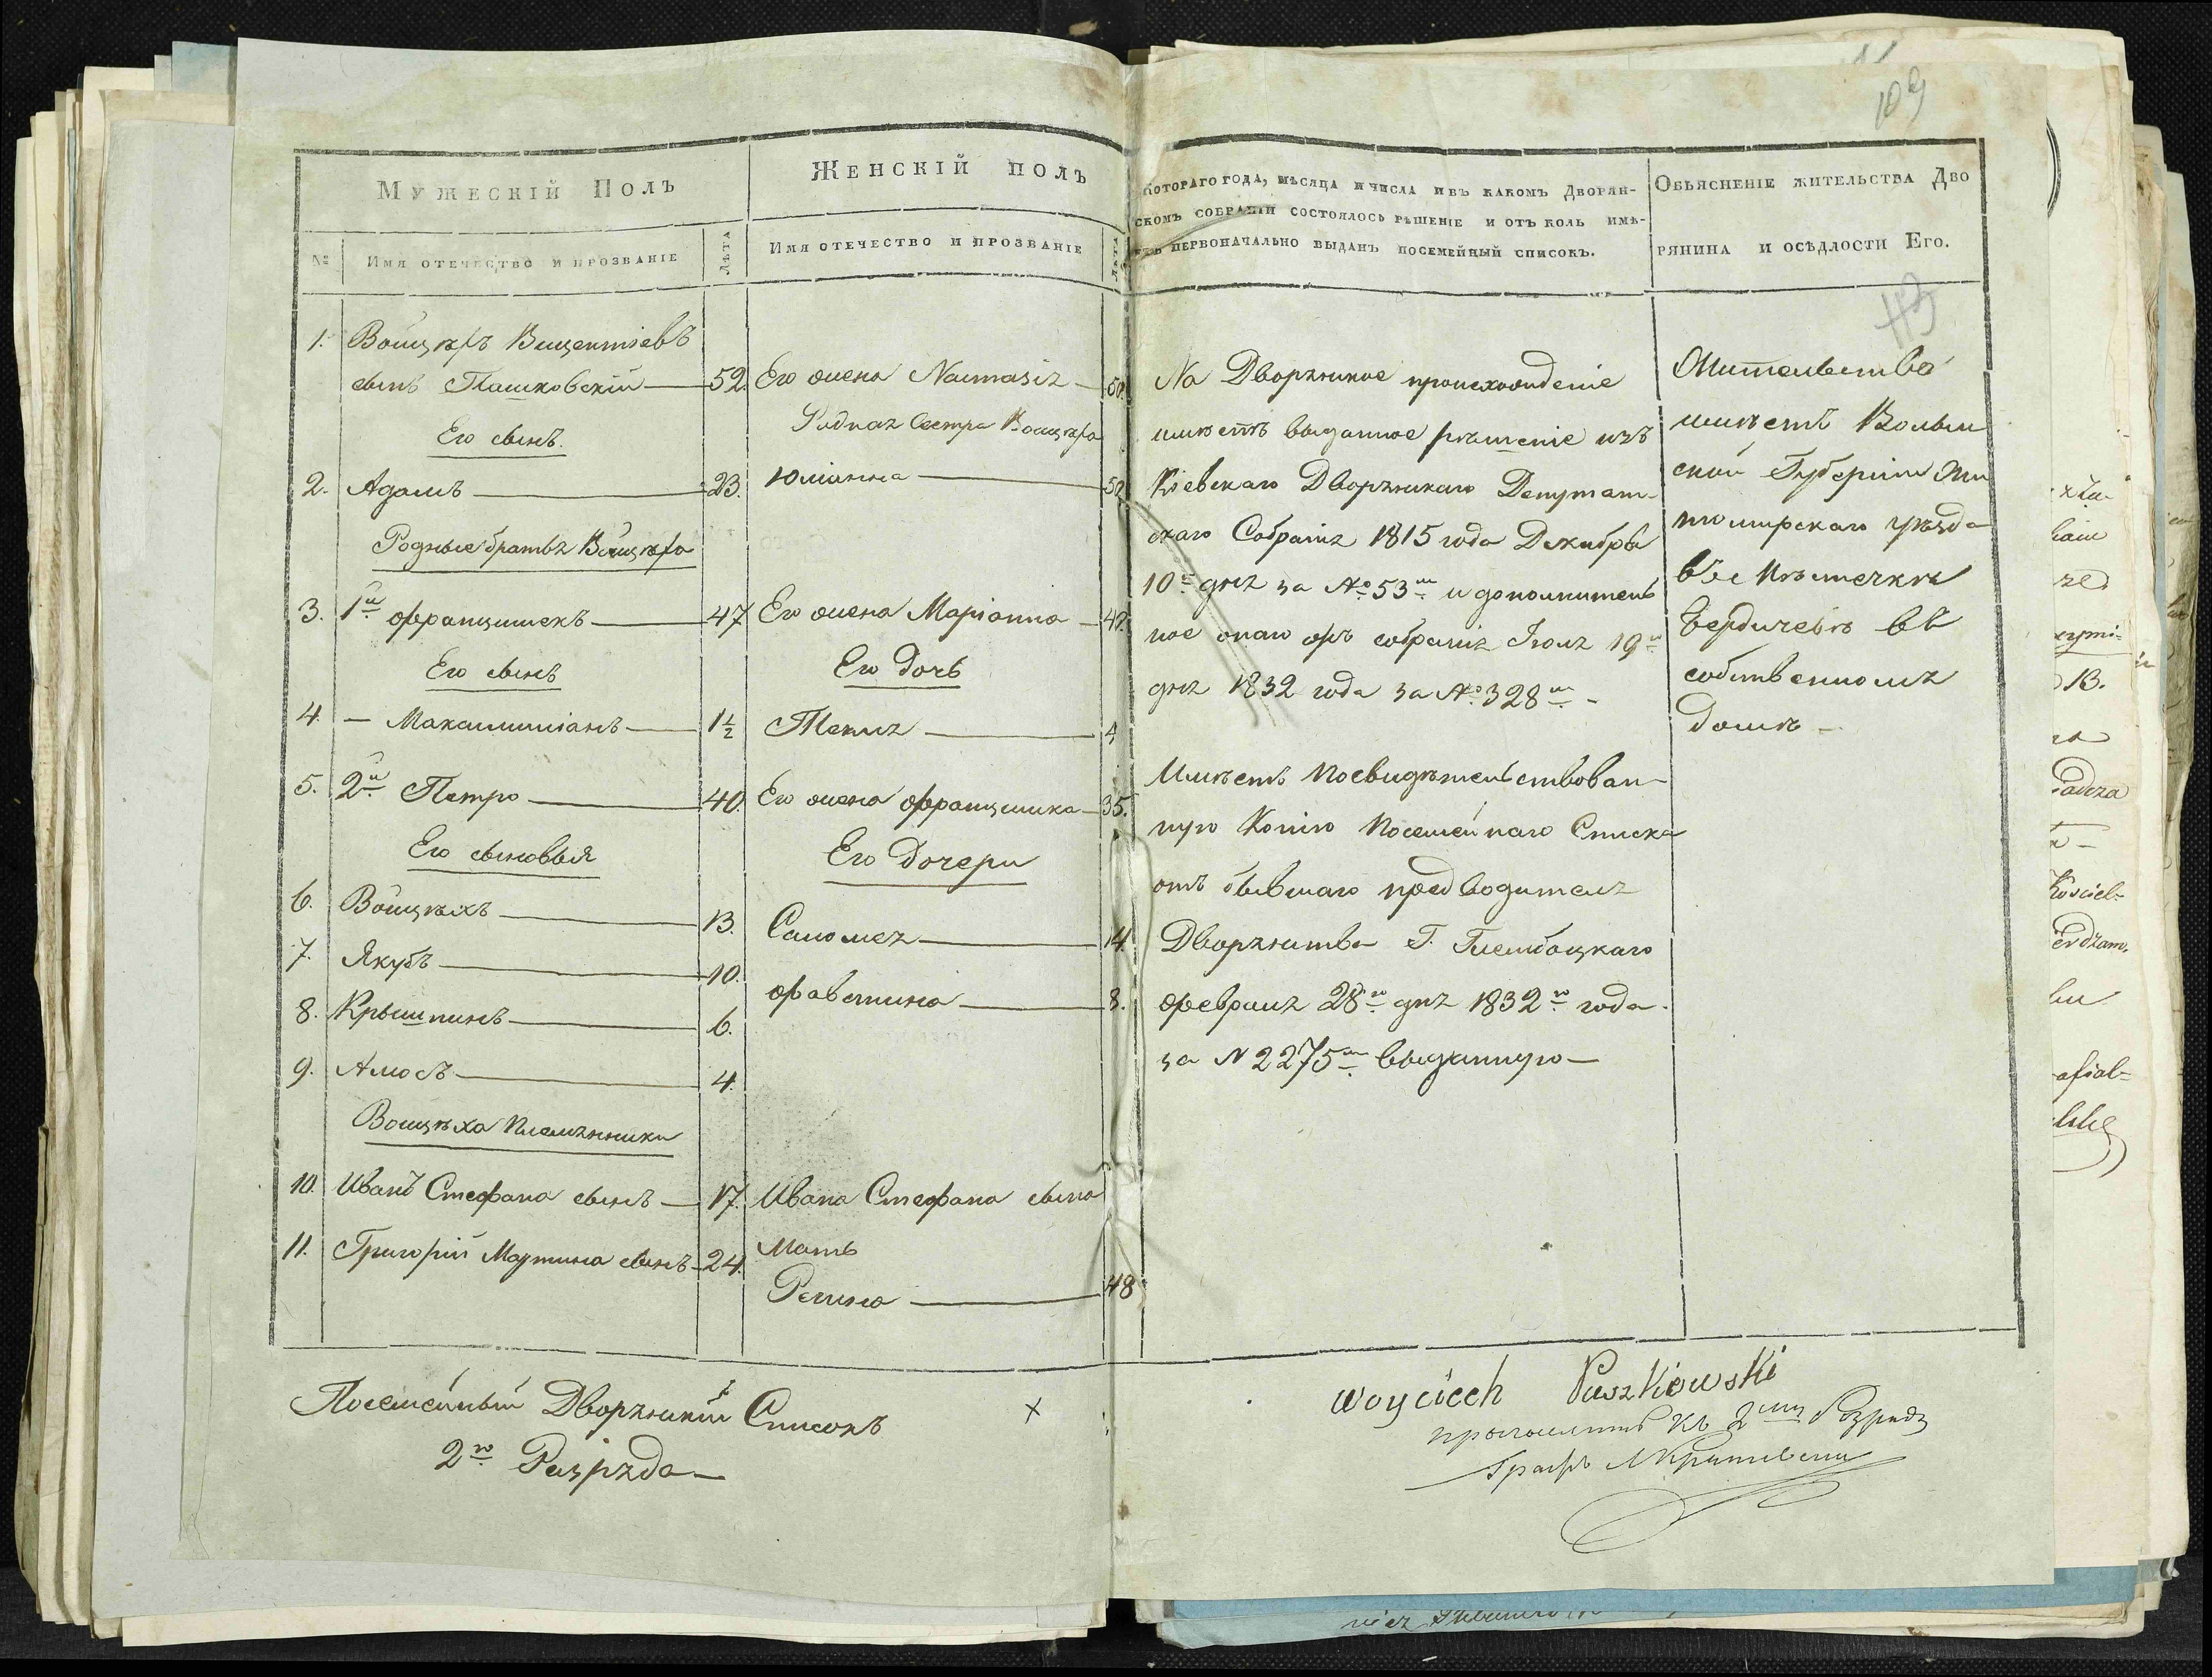 109
Мужескій Полъ
Женскій полъ
Котораго года, мѣсяца и числа и въ какомъ Дворян-
скомъ собраніи состоялось рѣшеніе и отъ коль имѣ-
етъ первоначально выданъ посемейный списокъ.
Объясненіе жительства Дво
рянина и осѣдлости Его.
№
Имя отечество и прозваніе
Лѣта
Имя отечество и прозваніе
Лѣта
113
1. Войцѣхъ Викентіевъ
сынъ Пашковскій — 52.
Его сынъ.
2. Адамъ — 23.
Родные братья Войцѣха
3. 1й Францишекъ — 47
Его сынъ
4 — Максимиліанъ — 1½
5. 2й Петро — 40.
Его сыновья
6. Войцѣхъ — 13.
7. Якубъ — 10.
8. Крышпинъ — 6.
9. Амосъ — 4.
Войцѣха племянники
10. Иванъ Стефана сынъ — 17.
11. Григорій Мартина сынъ — 24.
Его жена Настасія — 50.
Родная Сестра Войцѣха
Юліанна — 50
Его жена Маріанна — 40.
Его Дочь
Текля — 4
Его жена Францишка — 35.
Его Дочери
Саломея — 14.
Фавстина — 8.
Ивана Стефана сына
Мать
Регина — 48
На Дворянское происхожденіе
имѣетъ выданное рѣшеніе изъ
Кіевскаго Дворянскаго Депутат-
скаго Собранія 1815 года Декабря
10го дня за № 53м и дополнитель
ное онаго жъ собранія Іюля 19го
дня 1832 года за № 328м —
Имѣетъ Посвидѣтельствован-
ную Копію Посемейнаго Списка
отъ бывшаго предводителя
Дворянства Г. Глембоцкаго
февраля 28го дня 1832го года.
за N 2275м выданную —
Жительство
имѣетъ Волын
ской Губерніи Жи
томирскаго уѣзда
въ Мѣстечкѣ
Бердичевѣ въ
собственномъ
домѣ —
Посемейный Дворянскій Списокъ
2го Разряда —
Woyciech Paszkowski
къ 2му Разряду
Графъ